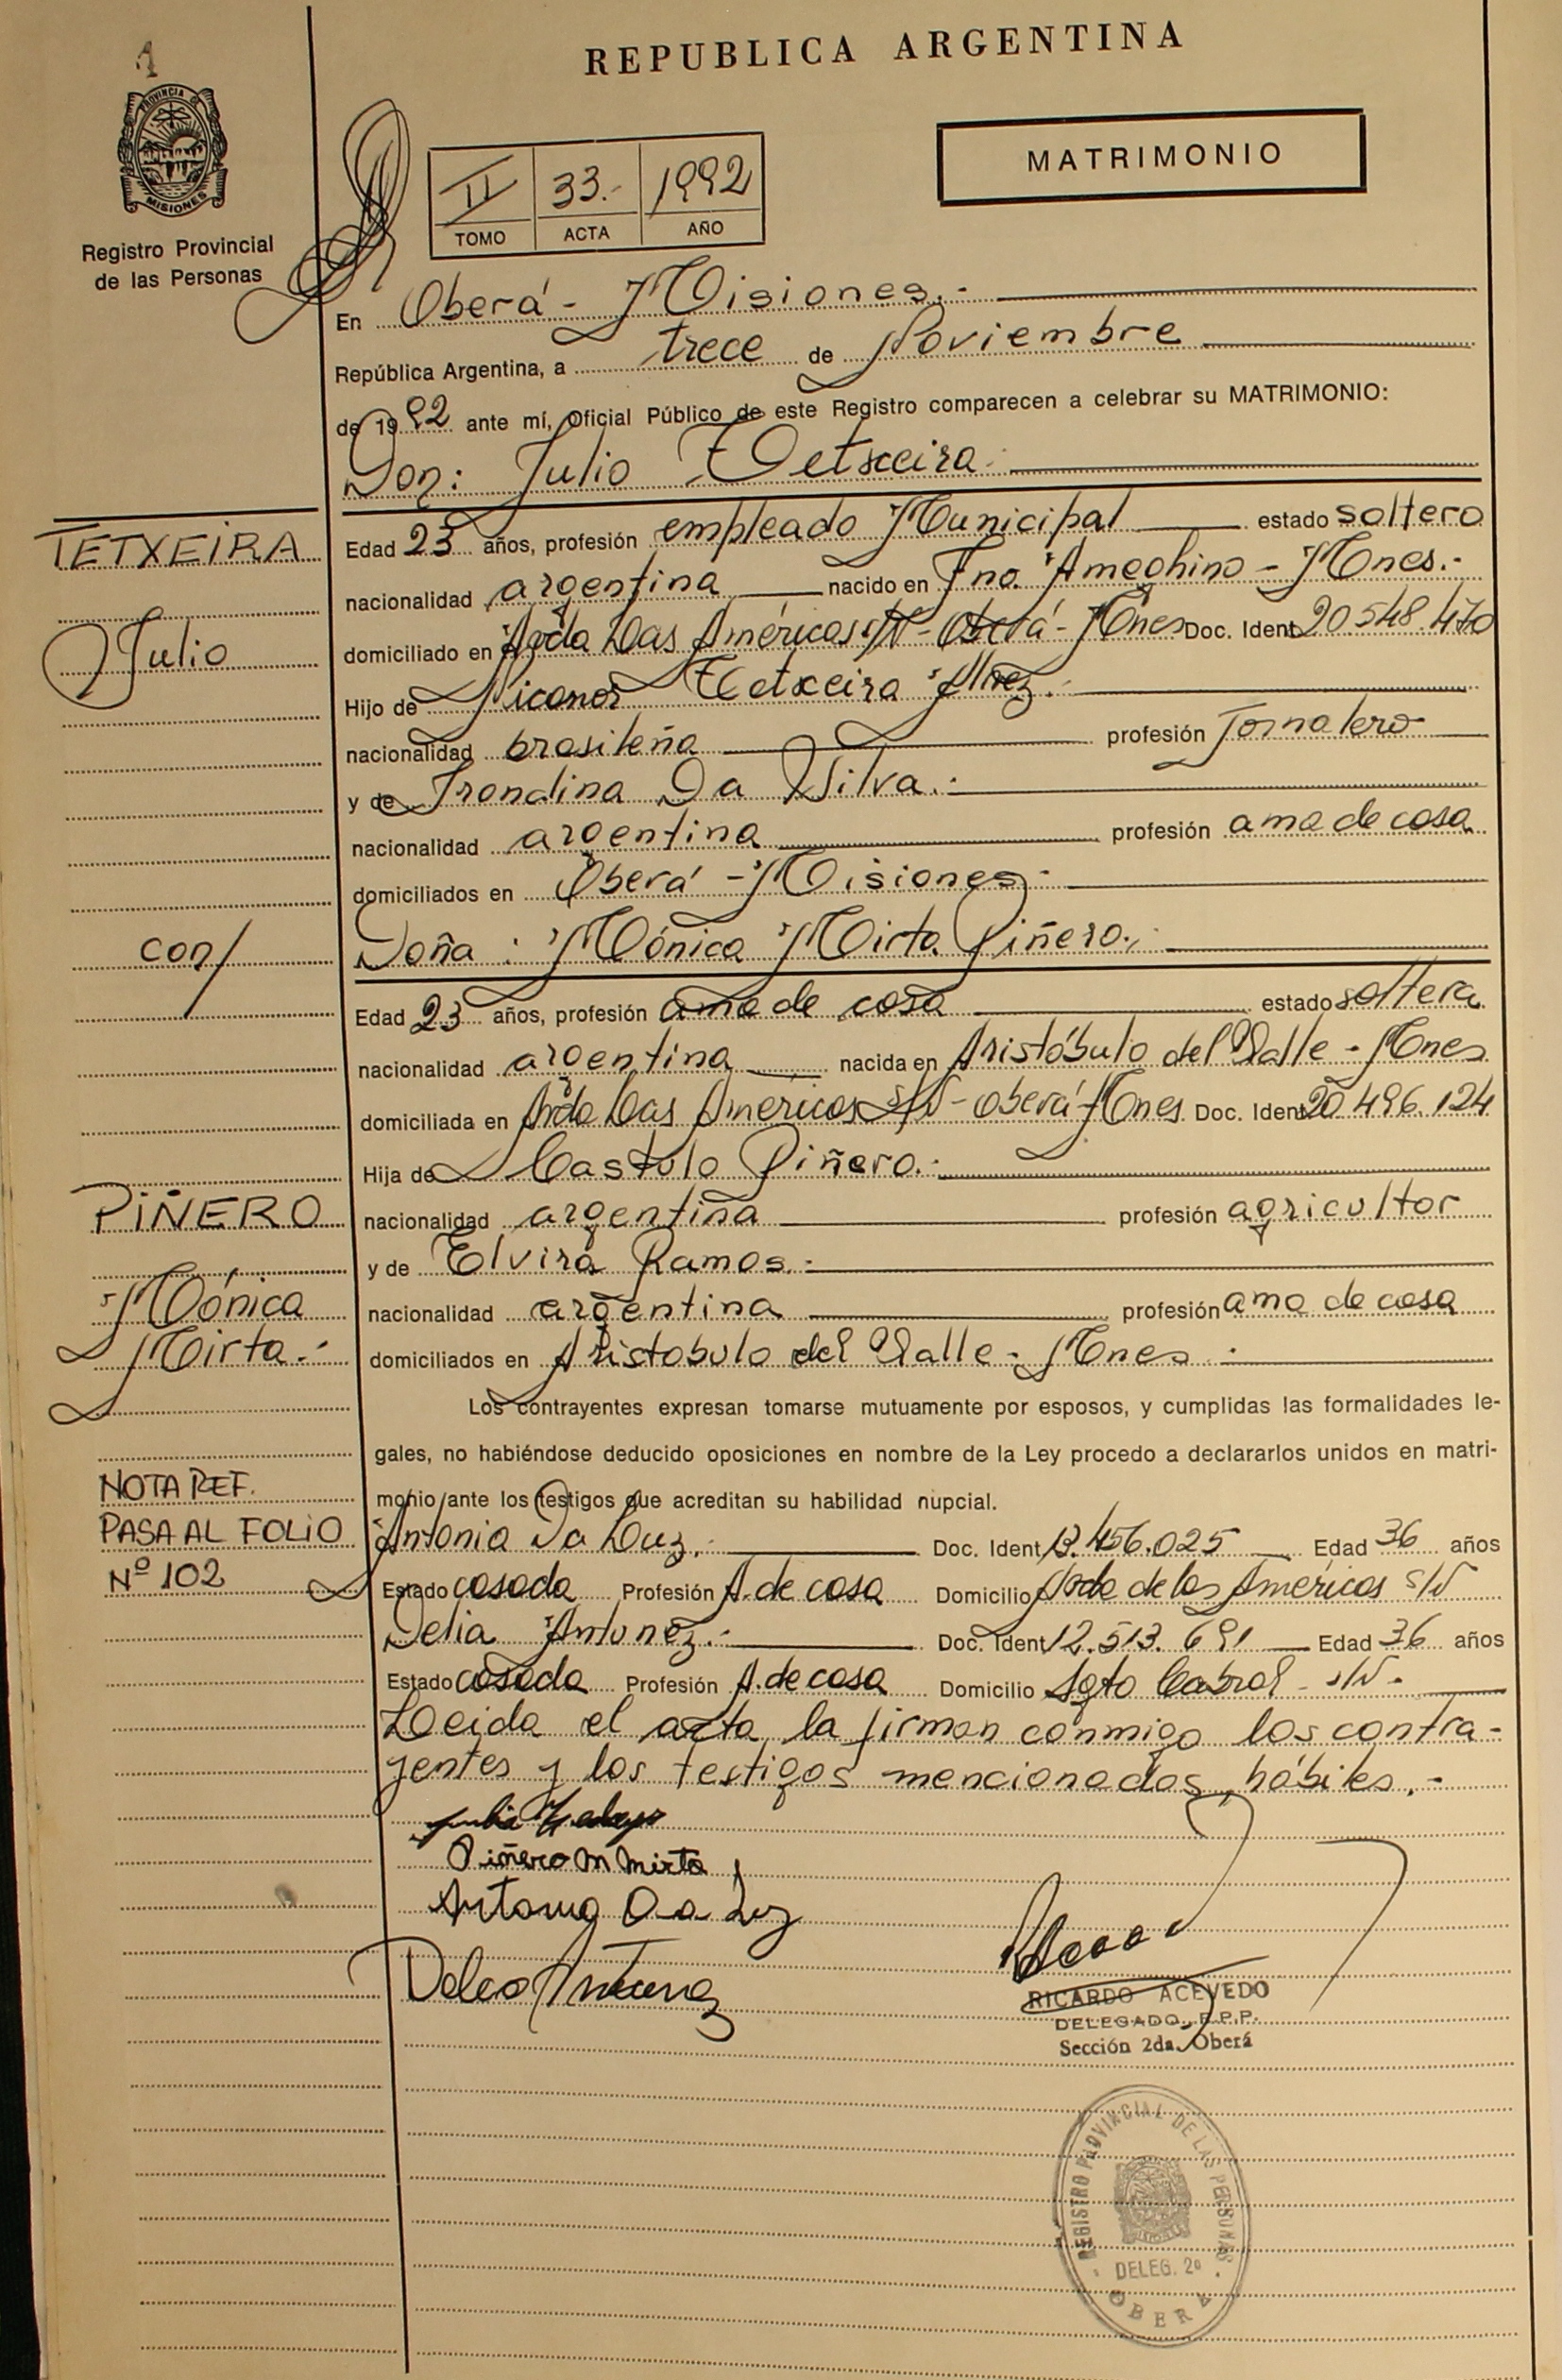 REPUBLICA ARGENTINA
PROVINCIA DE
MISIONES
Registro Provincial
de las Personas
MATRIMONIO
II 33.- 1992
TOMO ACTA AÑO
En Oberá - Misiones.-
República Argentina, a trece de Noviembre
de 1992 ante mí, Oficial Público de este Registro comparecen a celebrar su MATRIMONIO:
Don: Julio Tetxeira
TETXEIRA
Julio
Edad 23 años, profesión empleado Municipal estado soltero
nacionalidad argentina nacido en Fno. Ameghino - Mnes.-
domiciliado en Avda Las Américas S/N - Oberá - Mnes Doc. Ident. 20.548.470
Hijo de Nicanor Tetxeira
nacionalidad brasileña profesión Jornalero
y de Irondina Da Silva.-
nacionalidad argentina profesión ama de casa
domiciliados en Oberá - Misiones.-
con/
Doña: Mónica Mirta Piñero.-
Edad 23 años, profesión ama de casa estado soltera
nacionalidad argentina nacida en Aristóbulo del Valle - Mnes
domiciliada en Avda Las Américas S/N - Oberá - Mnes Doc. Ident. 20.496.124
Hija de Castulo Piñero.-
PIÑERO
Mónica
Mirta.-
nacionalidad argentina profesión agricultor
y de Elvira Ramos.-
nacionalidad argentina profesión ama de casa
domiciliados en Aristobulo del Valle - Mnes.-
Los contrayentes expresan tomarse mutuamente por esposos, y cumplidas las formalidades le-
gales, no habiéndose deducido oposiciones en nombre de la Ley procedo a declararlos unidos en matri-
monio ante los testigos que acreditan su habilidad nupcial.
NOTA REF.
PASA AL FOLIO
Nº 102
Antonia Da Luz.- Doc. Ident 13.456.025 Edad 36 años
Estado casada Profesión A. de casa Domicilio Avda de las Americas S/N
Delia Antunez.- Doc. Ident 12.513.691 Edad 36 años
Estado casada Profesión A. de casa Domicilio Sgto Cabral - S/N.-
Leida el acta, la firman conmigo los contra-
yentes y los testigos mencionados, hábiles.-
Piñero M Mirta
Antonia Da Luz
Delia Antunez
RICARDO ACEVEDO
DELEGADO R.P.P.
Sección 2da. Oberá
REGISTRO PROVINCIAL DE LAS PERSONAS
DELEG. 2º
OBERA